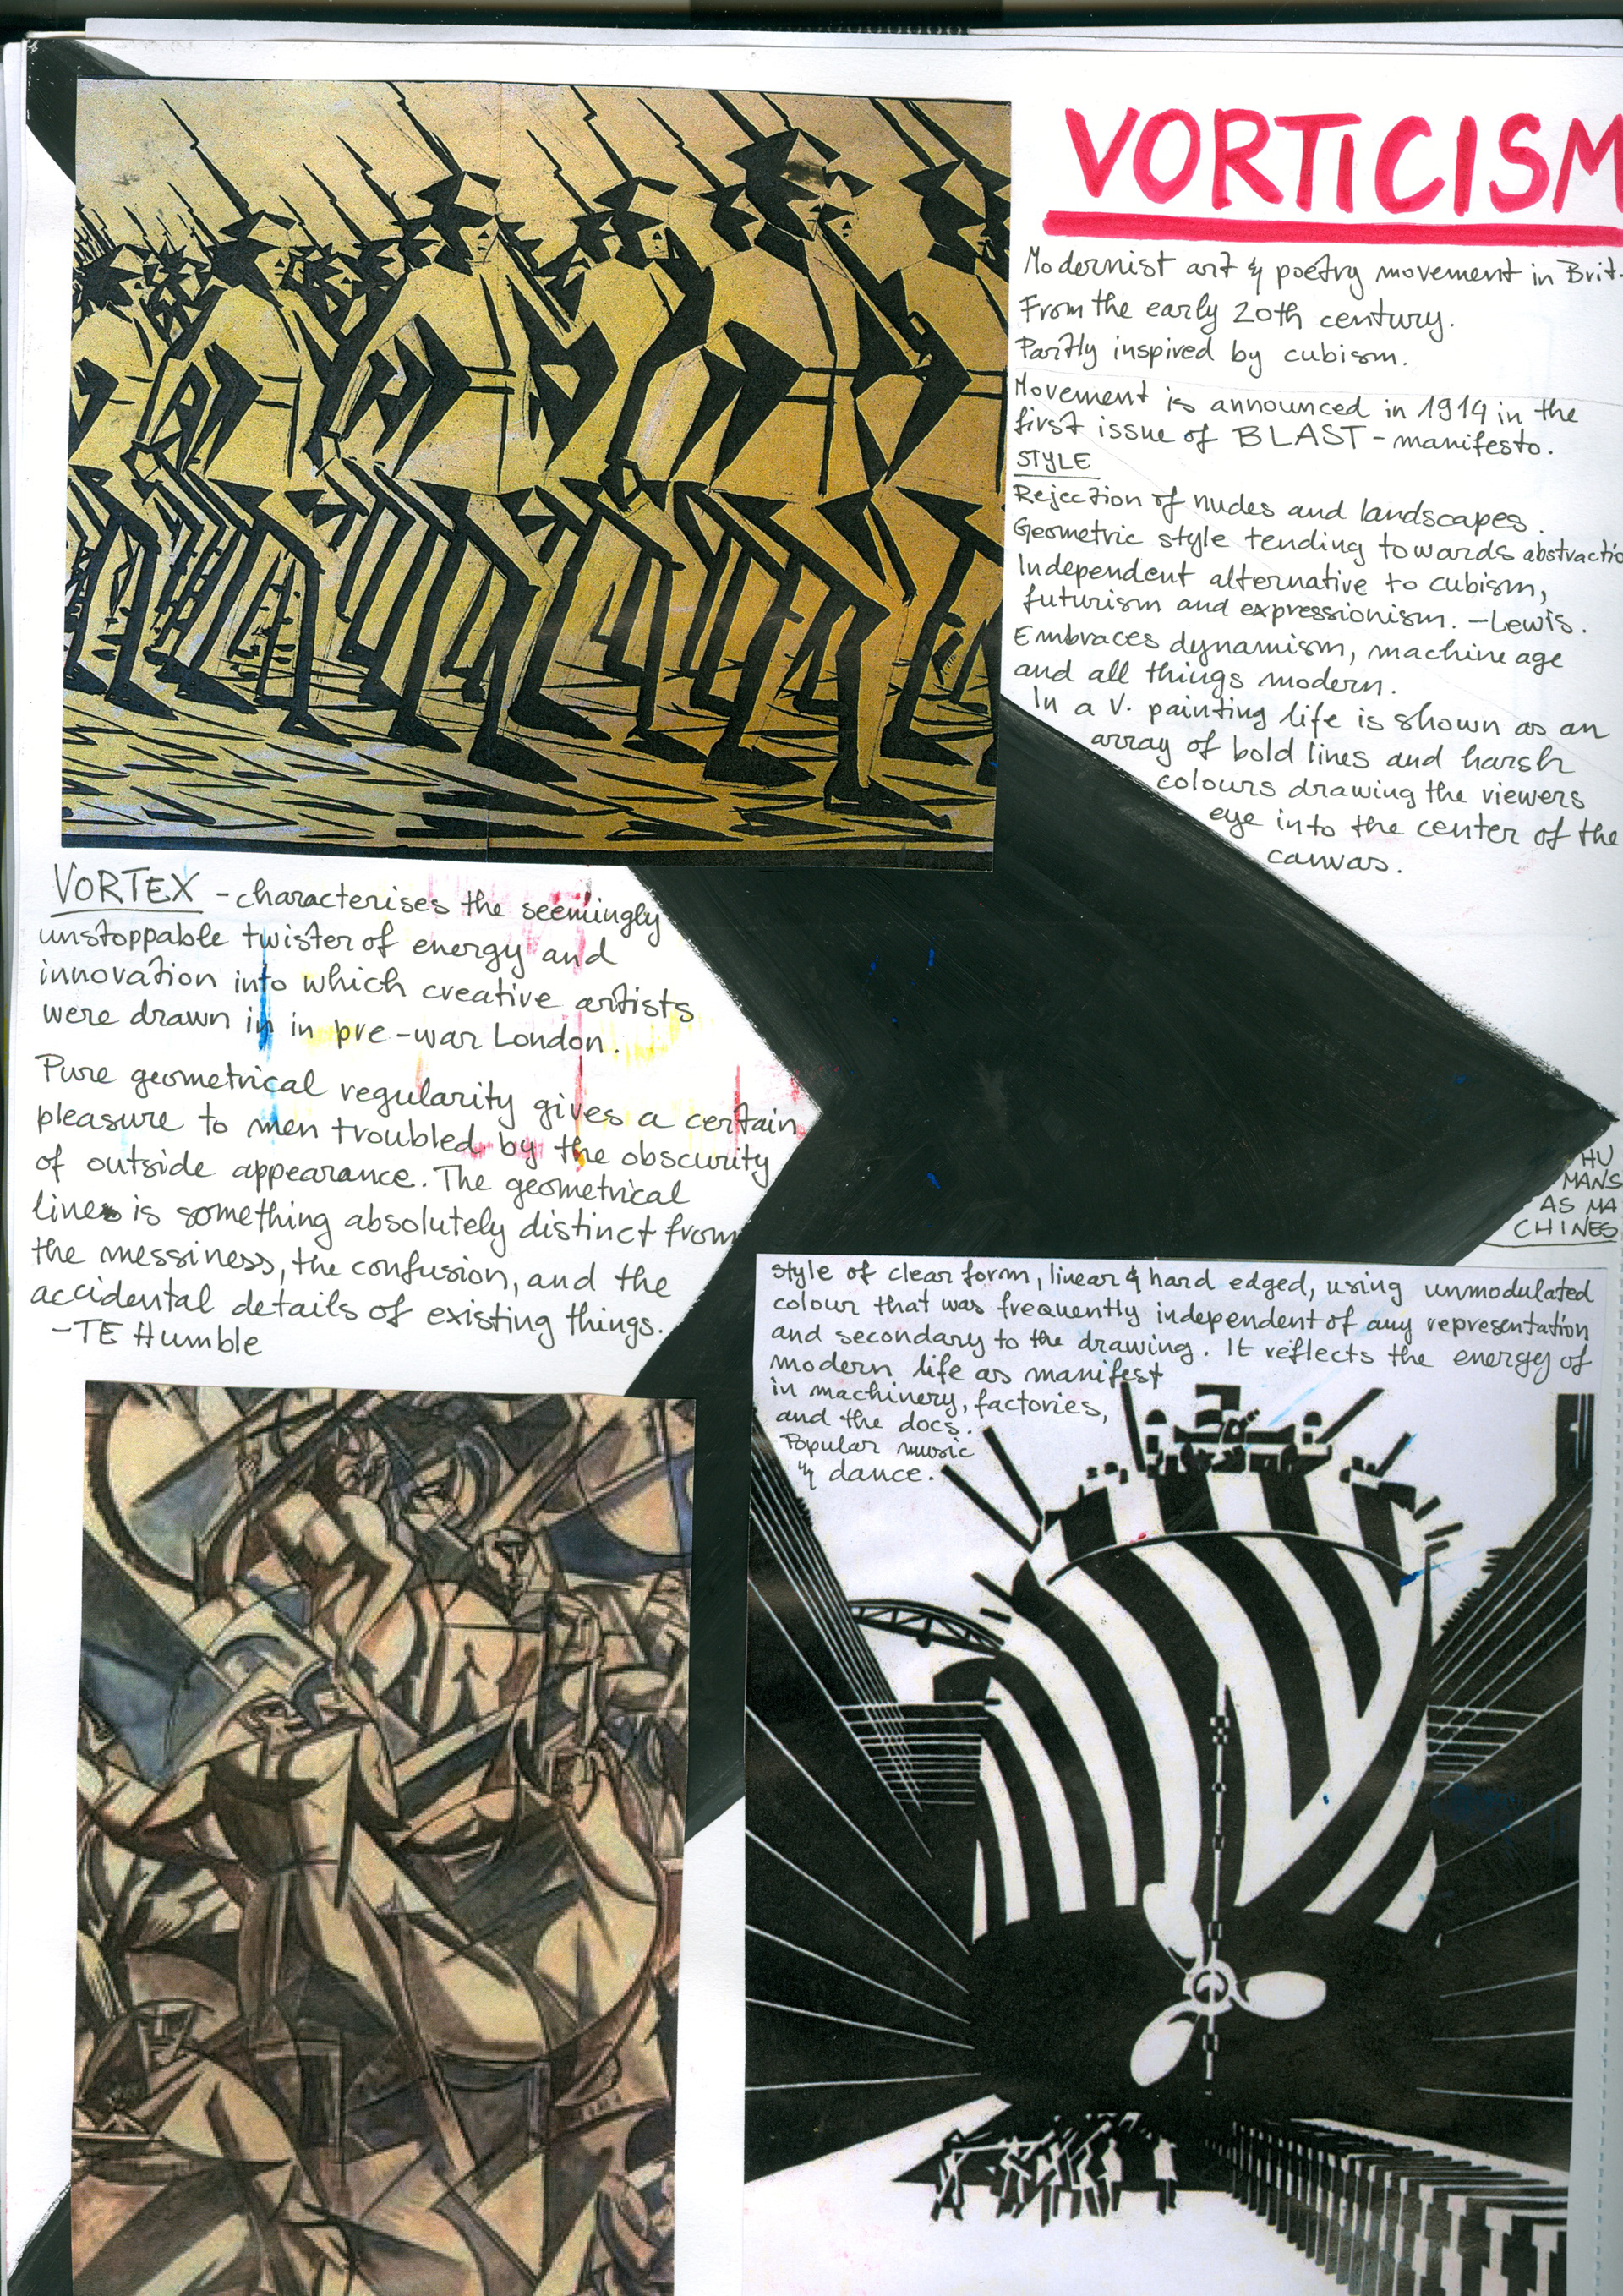 VORTICISM
Modernist art & poetry movement in Brit.
From the early 20th century.
Partly inspired by cubism.
Movement is announced in 1914 in the
first issue of BLAST - manifesto.
STYLE
Rejection of nudes and landscapes.
Geometric style tending towards abstractio
Independent alternative to cubism,
futurism and expressionism. - Lewis.
Embraces dynamism, machine age
and all things modern.
In a V. painting life is shown as an
array of bold lines and harsh
colours drawing the viewers
eye into the center of the
canvas.
VORTEX - characterises the seemingly
unstoppable twister of energy and
innovation into which creative artists
were drawn in in pre-war London.
Pure geometrical regularity gives a certain
pleasure to men troubled by the obscurity
of outside appearance. The geometrical
line is something absolutely distinct from
the messiness, the confusion, and the
accidental details of existing things.
-TE Humble
HU
MANS
AS MA
CHINES
style of clear form, linear & hard edged, using unmodulated
colour that was frequently independent of any representation
and secondary to the drawing. It reflects the energy of
modern life as manifest
in machinery, factories,
and the docs.
Popular music
& dance.